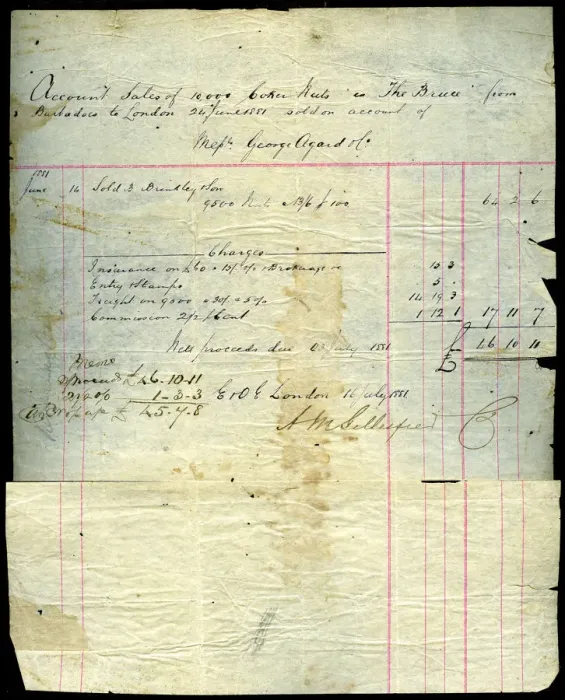 Account Sales of 10,000 Coker Nuts ex The Bruce from
Barbados to London 24 June 1881 sold on account of
Messrs George Agard & Co
1881
June 14 Sold Brinkley & Son
9500 Nuts 13/6 100 64 2 6
Charges
Insurance on £60 Brokerage 15 3
Entry & Stamps 5 .
Freight on 9500 30/ & 5% 14 19 3
Commission 2½ / Cent 1 12 1 17 11 7
Nett proceeds due July 1881 £ 46 10 11
Memo
proceeds £46-10-11
1-3-3
£45-7-8
E & O E London 16 July 1881
A M Gillespie & Co